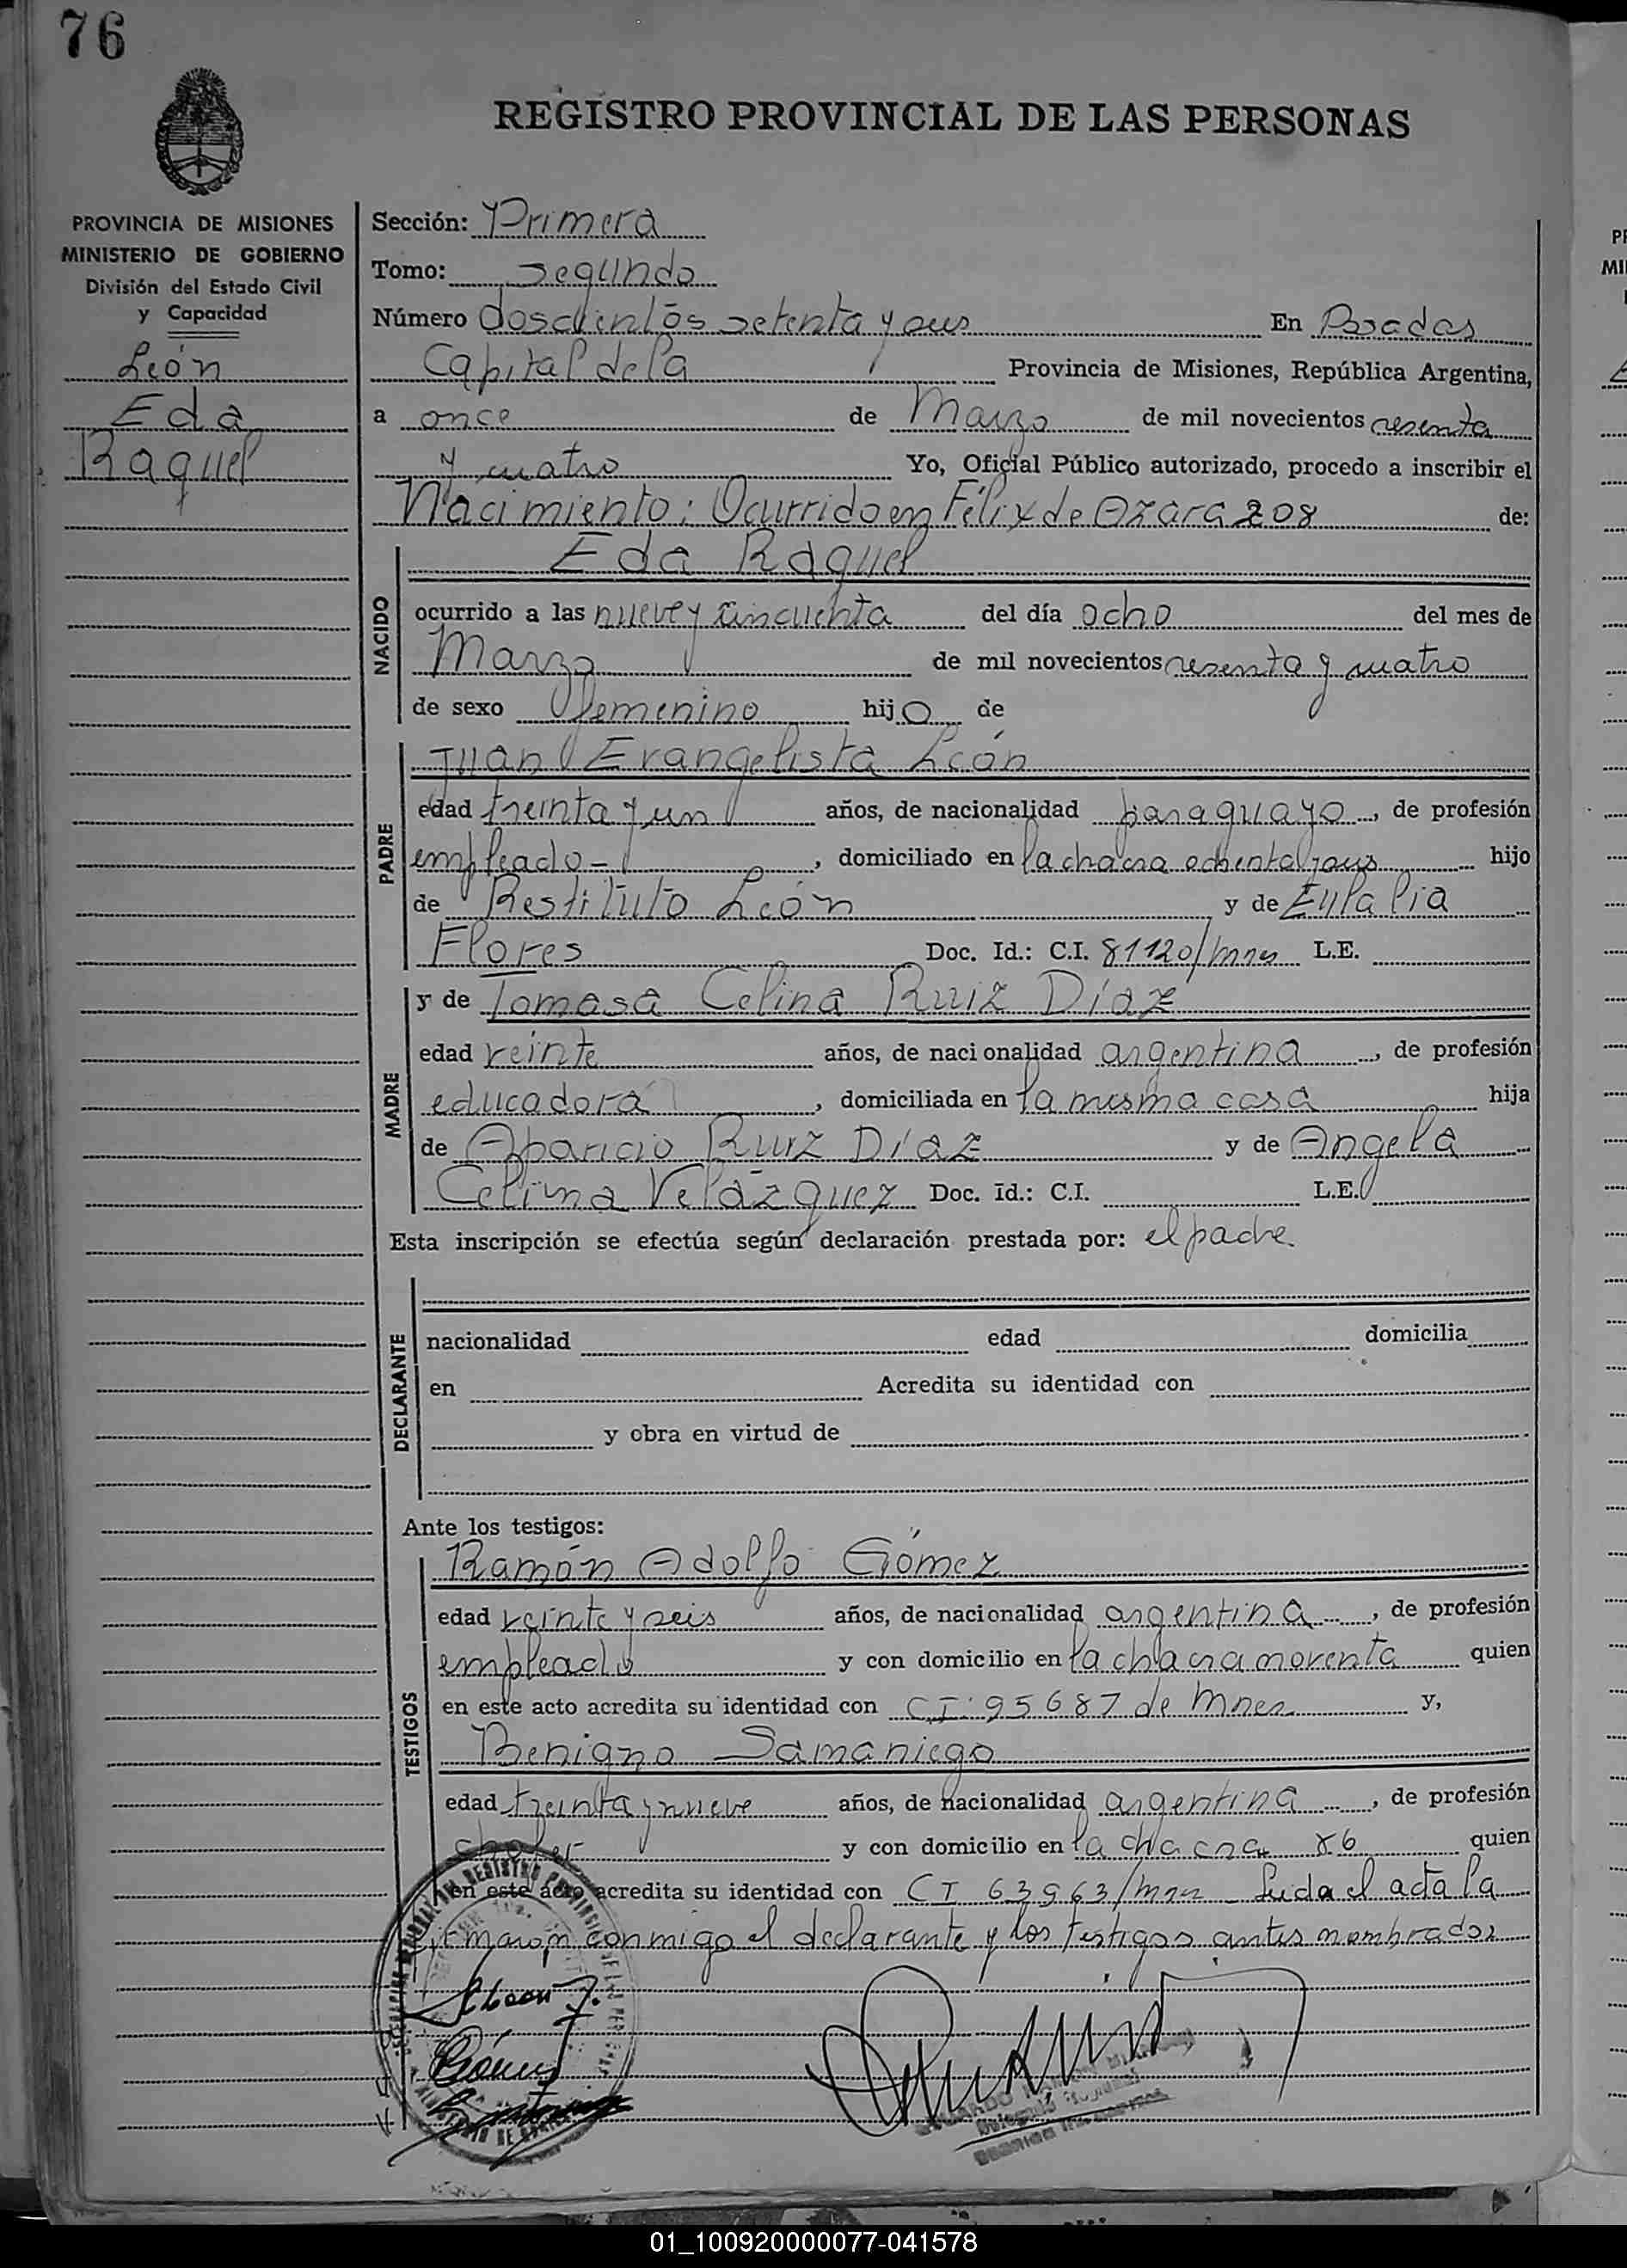 76
REGISTRO PROVINCIAL DE LAS PERSONAS
PROVINCIA DE MISIONES
MINISTERIO DE GOBIERNO
División del Estado Civil
y Capacidad
León
Eda
Raquel
Sección: Primera
Tomo: segundo
Número doscientos setenta y seis En Posadas
Capital de la Provincia de Misiones, República Argentina,
a once de Marzo de mil novecientos sesenta
y cuatro Yo, Oficial Público autorizado, procedo a inscribir el
Nacimiento: Ocurrido en Félix de Azara 208 de:
NACIDO
Eda Raquel
ocurrido a las nueve y cincuenta del día ocho del mes de
Marzo de mil novecientos sesenta y cuatro
de sexo femenino hijo de
PADRE
Juan Evangelista León
edad treinta y un años, de nacionalidad paraguayo, de profesión
empleado-, domiciliado en la chacra ochenta y seis hijo
de Restituto León y de Eulalia
Flores Doc. Id.: C.I. 81120/mnes L.E.
MADRE
y de Tomasa Celina Ruiz Díaz
edad veinte años, de nacionalidad argentina, de profesión
educadora, domiciliada en la misma casa hija
de Aparicio Ruiz Díaz y de Angela
Celina Velázquez Doc. Id.: C.I. L.E.
Esta inscripción se efectúa según declaración prestada por: el padre
DECLARANTE
nacionalidad edad domicilia
en Acredita su identidad con
y obra en virtud de
Ante los testigos:
TESTIGOS
Ramón Adolfo Gómez
edad veinte y seis años, de nacionalidad argentina, de profesión
empleado y con domicilio en la chacra noventa quien
en este acto acredita su identidad con CI: 95687 de Mnes y,
Benigno Samaniego
edad treinta y nueve años, de nacionalidad argentina, de profesión
chofer y con domicilio en la chacra 86 quien
en este acto acredita su identidad con CI 63963/mnes Leida el acta la
firmaron conmigo el declarante y los testigos antes nombrados
01_100920000077-041578